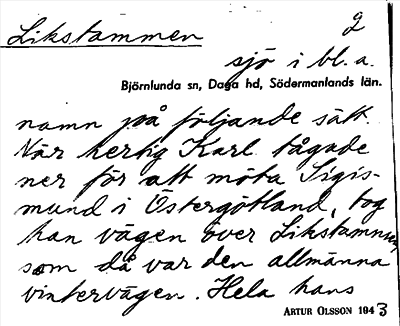 Likstammen
2
sjö i bl. a.
Björnlunda sn, Daga hd, Södermanlands län.
namn på följande sätt.
När hertig Karl tågade
ner för att möta Sigis-
mund i Östergötland, tog
han vägen över Likstammen,
som då var den allmänna
vintervägen. Hela hans
ARTUR OLSSON 1943